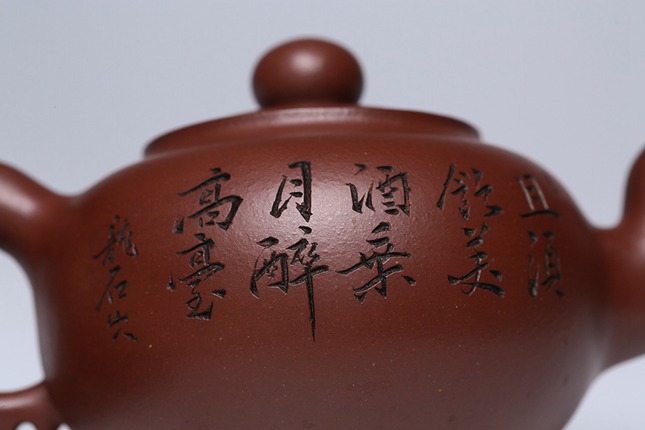 且須
飲美
酒乘
月醉
高臺
龍石